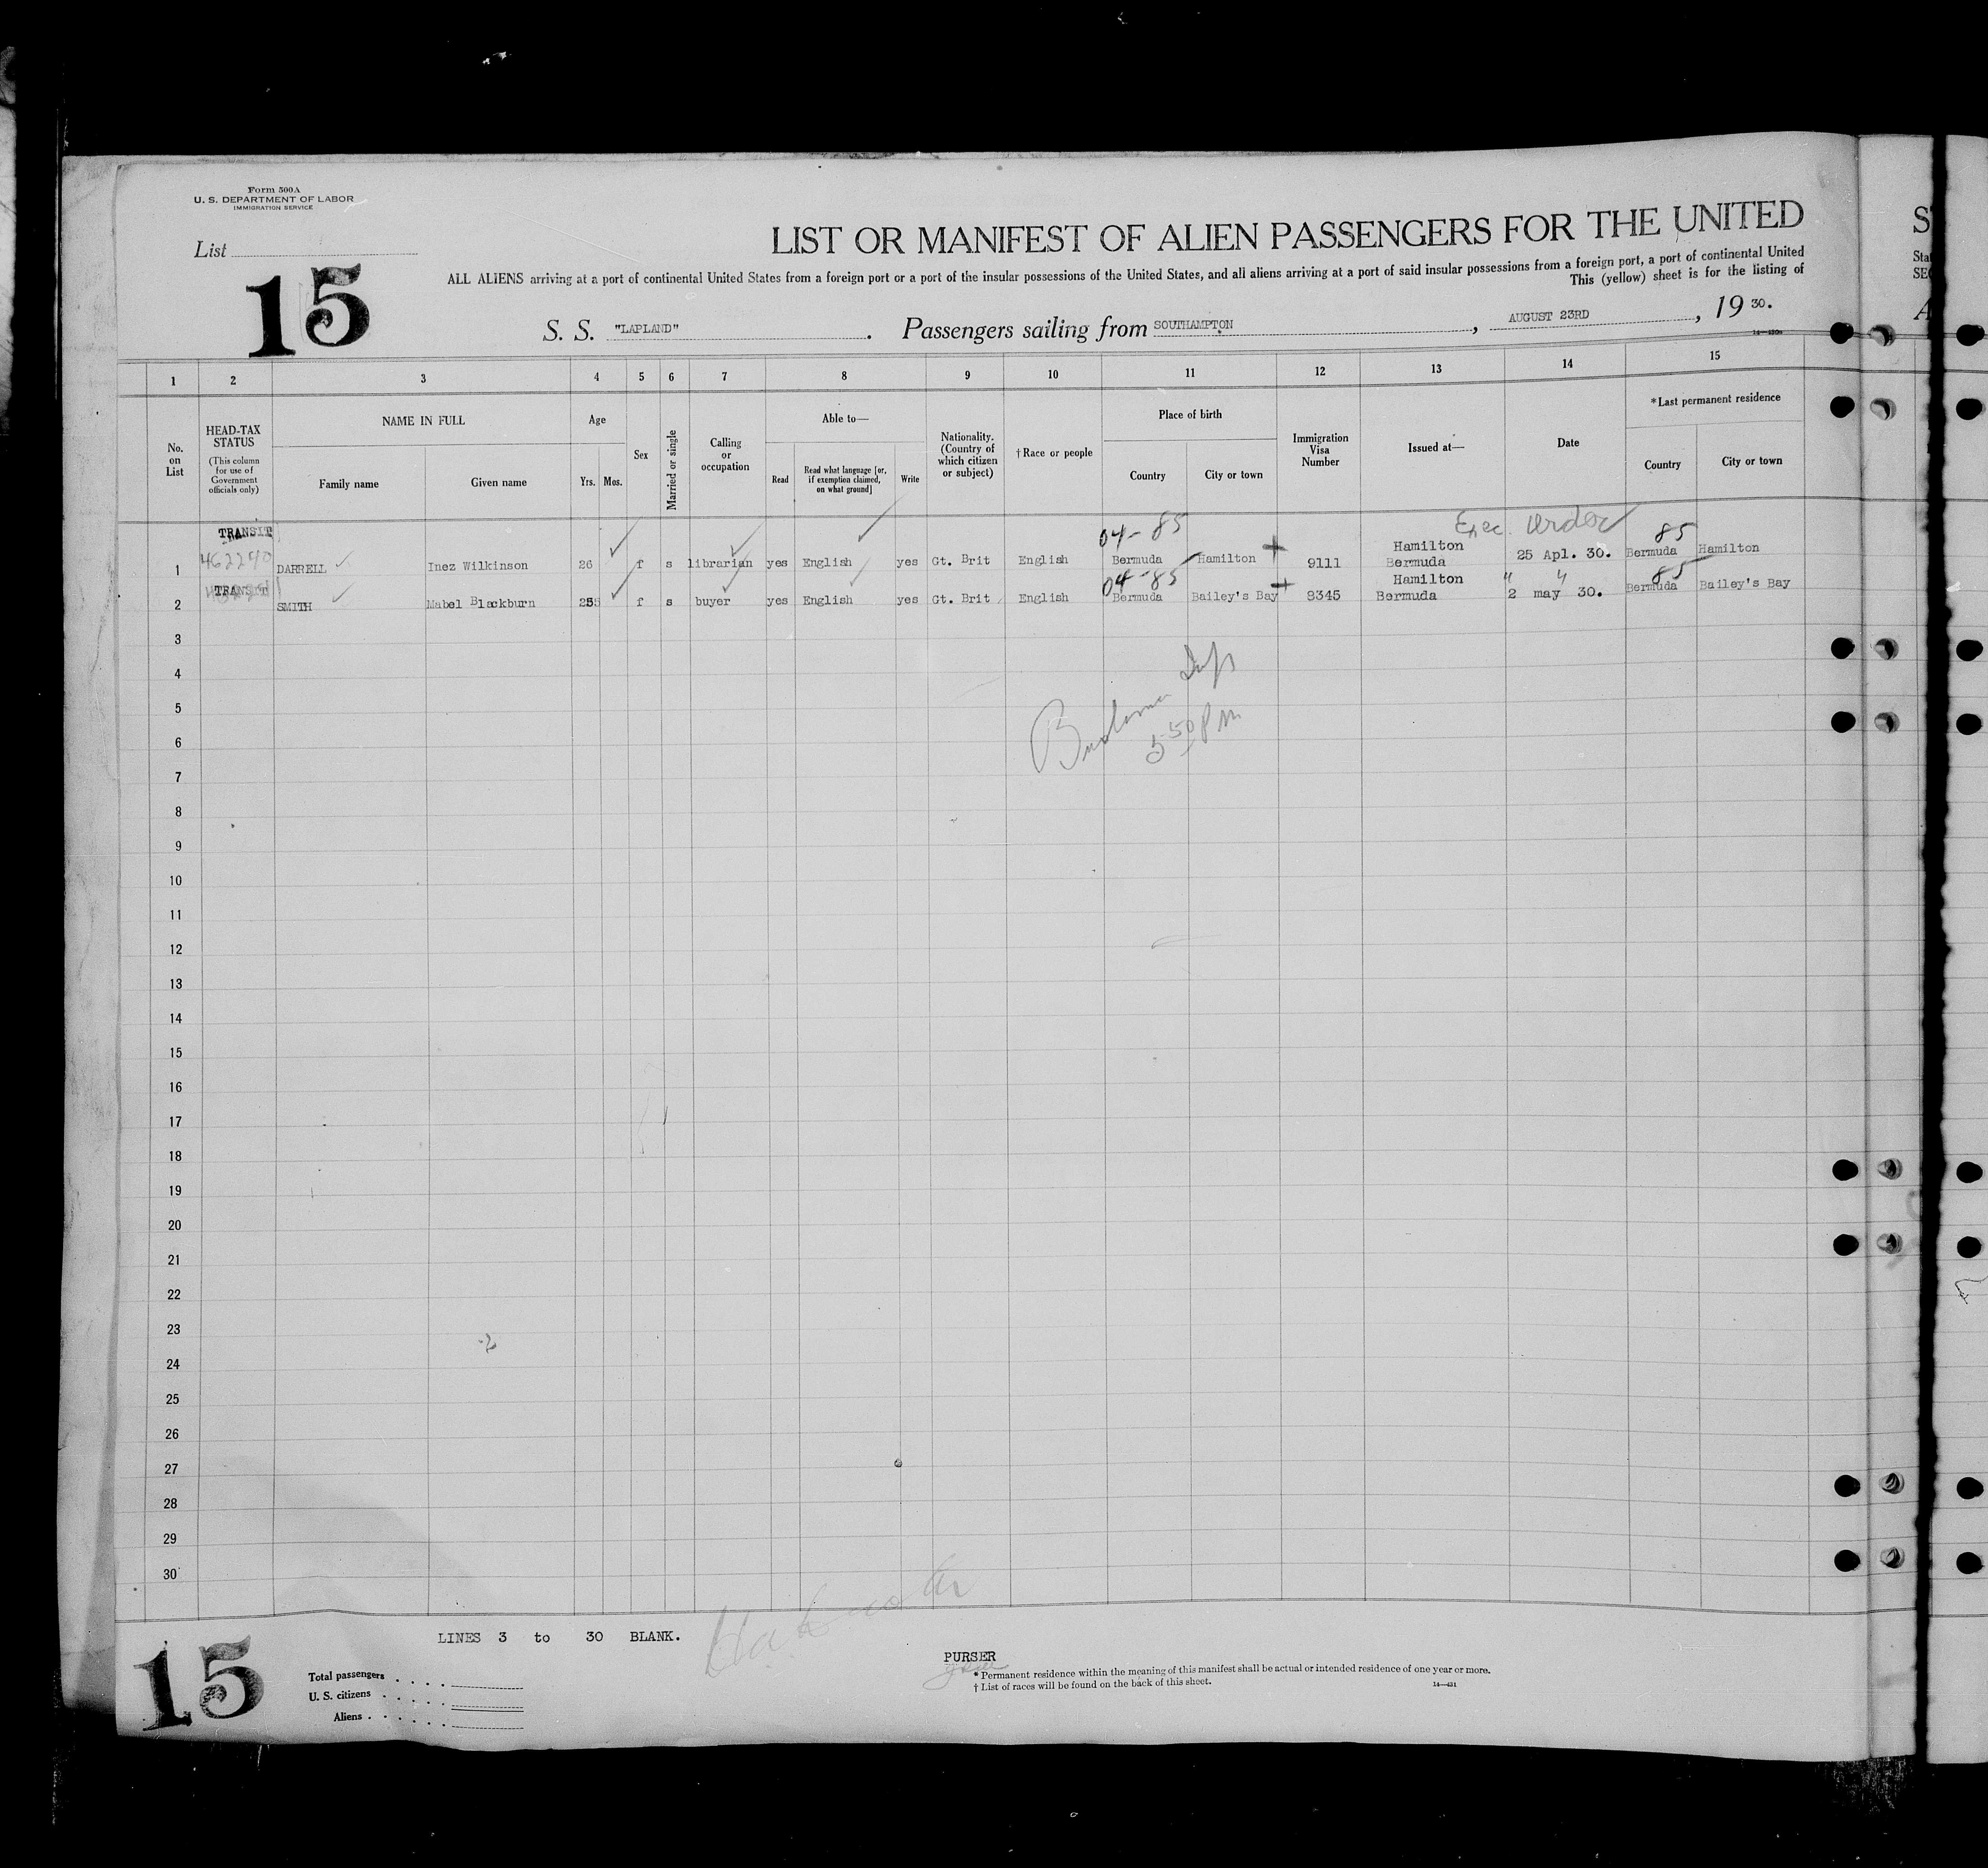 Form 500A
U. S. DEPARTMENT OF LABOR
IMMIGRATION SERVICE
List
15
LIST OR MANIFEST OF ALIEN PASSENGERS FOR THE UNITED
ALL ALIENS arriving at a port of continental United States from a foreign port or a port of the insular possessions of the United States, and all aliens arriving at a port of said insular possessions from a foreign port, a port of continental United
This (yellow) sheet is for the listing of
S. S. "LAPLAND". Passengers sailing from SOUTHAMPTON, AUGUST 23RD, 19 30.
1 2 3 4 5 6 7 8 9 10 11 12 13 14 15
No. on List
HEAD-TAX STATUS (This column for use of Government officials only)
NAME IN FULL
Family name
Given name
Age
Yrs. Mos.
Sex
Married or single
Calling or occupation
Able to—
Read
Read what language [or, if exemption claimed, on what ground]
Write
Nationality. (Country of which citizen or subject)
†Race or people
Place of birth
Country
City or town
Immigration Visa Number
Issued at—
Date
*Last permanent residence
Country
City or town
TRANSIT 04-85 Exec. Order 85
1 462240 DARRELL Inez Wilkinson 26 f s librarian yes English yes Gt. Brit English Bermuda Hamilton 9111 Hamilton Bermuda 25 Apl. 30. Bermuda Hamilton
TRANSIT 04-85 " " 85
2 SMITH Mabel Blackburn f s buyer yes English yes Gt. Brit English Bermuda Bailey's Bay 9345 Hamilton Bermuda 2 may 30. Bermuda Bailey's Bay
3
4
5
6
5 50 PM
7
8
9
10
11
12
13
14
15
16
17
18
19
20
21
22
23
24
25
26
27
28
29
30
LINES 3 to 30 BLANK.
15
Total passengers
U. S. citizens
Aliens
PURSER
* Permanent residence within the meaning of this manifest shall be actual or intended residence of one year or more.
† List of races will be found on the back of this sheet.
14—431